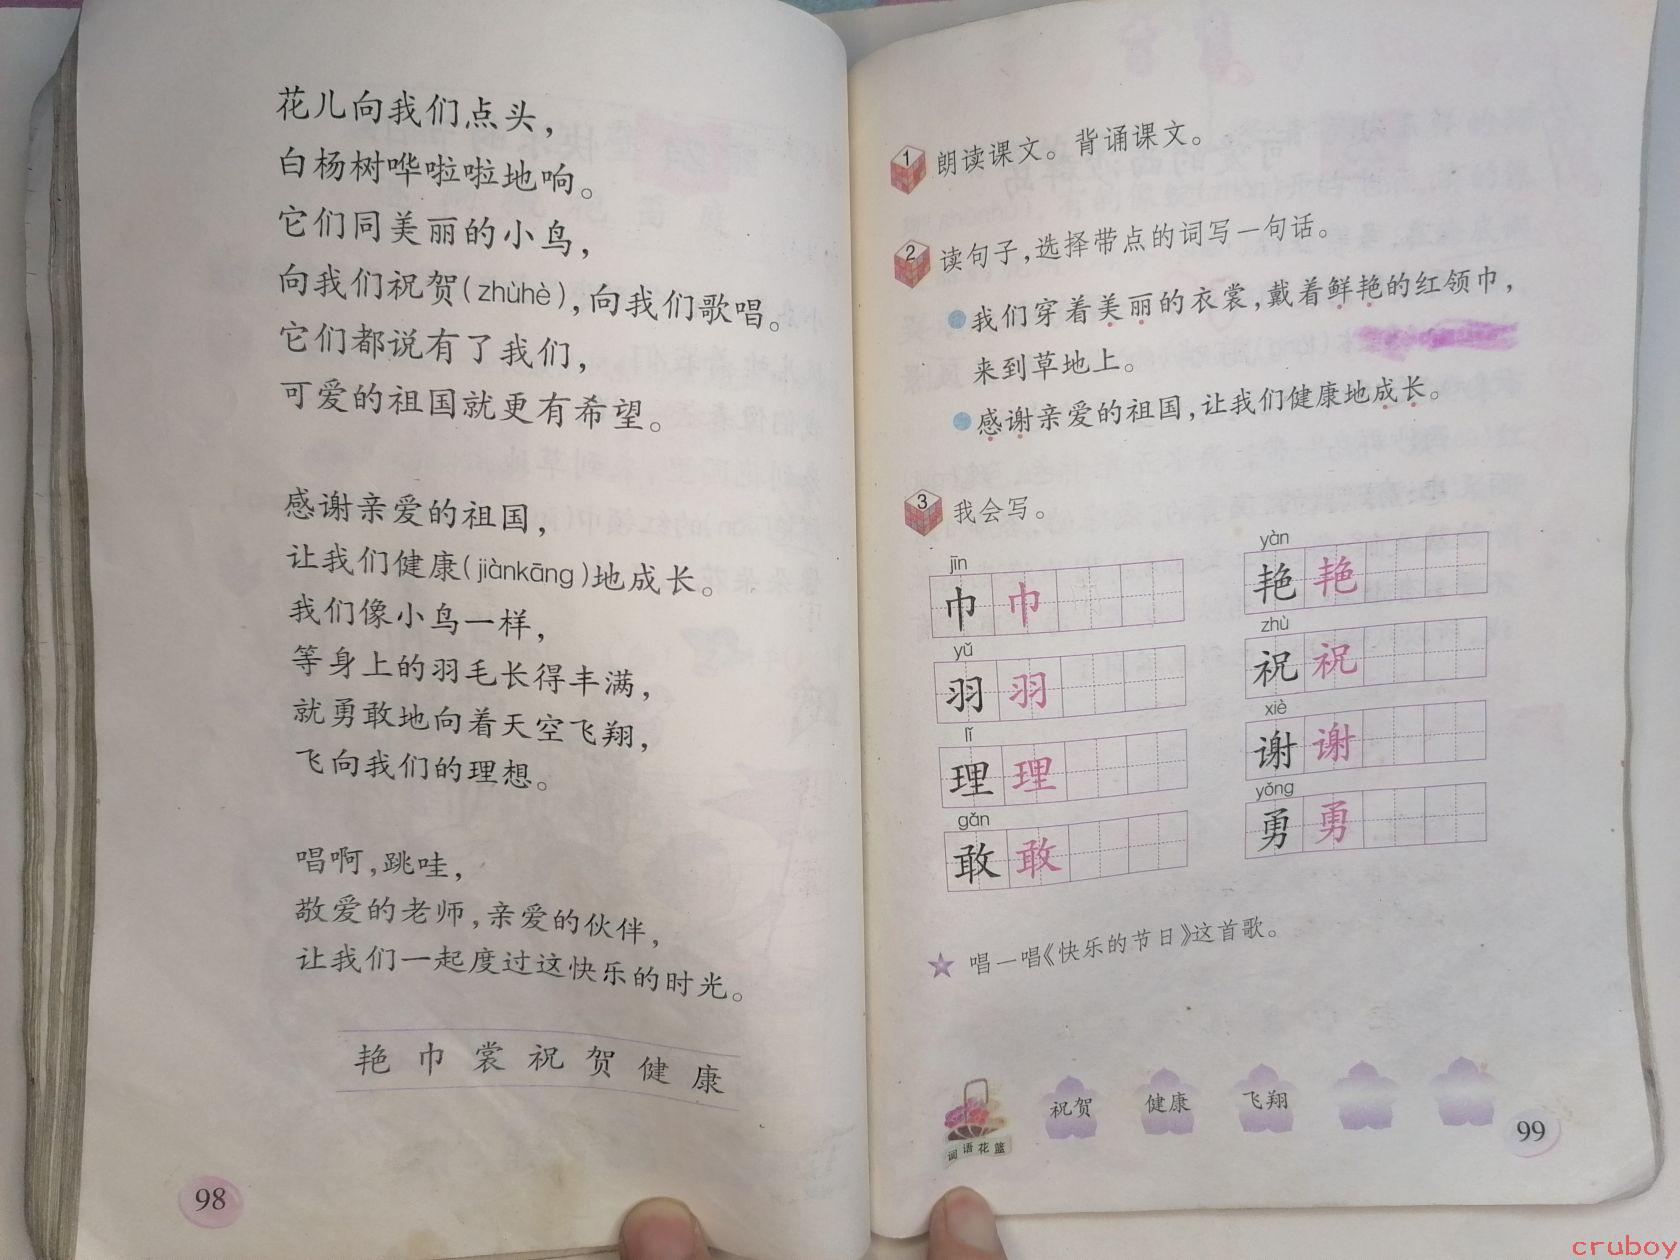 花儿向我们点头，
白杨树哗啦啦地响。
它们同美丽的小鸟，
向我们祝贺(zhùhè)，向我们歌唱。
它们都说有了我们，
可爱的祖国就更有希望。
感谢亲爱的祖国，
让我们健康(jiànkāng)地成长。
我们像小鸟一样，
等身上的羽毛长得丰满，
就勇敢地向着天空飞翔，
飞向我们的理想。
唱啊，跳哇，
敬爱的老师，亲爱的伙伴，
让我们一起度过这快乐的时光。
艳 巾 裳 祝 贺 健 康
98
1 朗读课文。背诵课文。
2 读句子，选择带点的词写一句话。
我们穿着美丽的衣裳，戴着鲜艳的红领巾，
来到草地上。
感谢亲爱的祖国，让我们健康地成长。
3 我会写。
jīn yàn
巾 巾 艳 艳
yǔ zhù
羽 羽 祝 祝
lǐ xiè
理 理 谢 谢
gǎn yǒng
敢 敢 勇 勇
唱一唱《快乐的节日》这首歌。
词语花篮 祝贺 健康 飞翔
99
cruboy